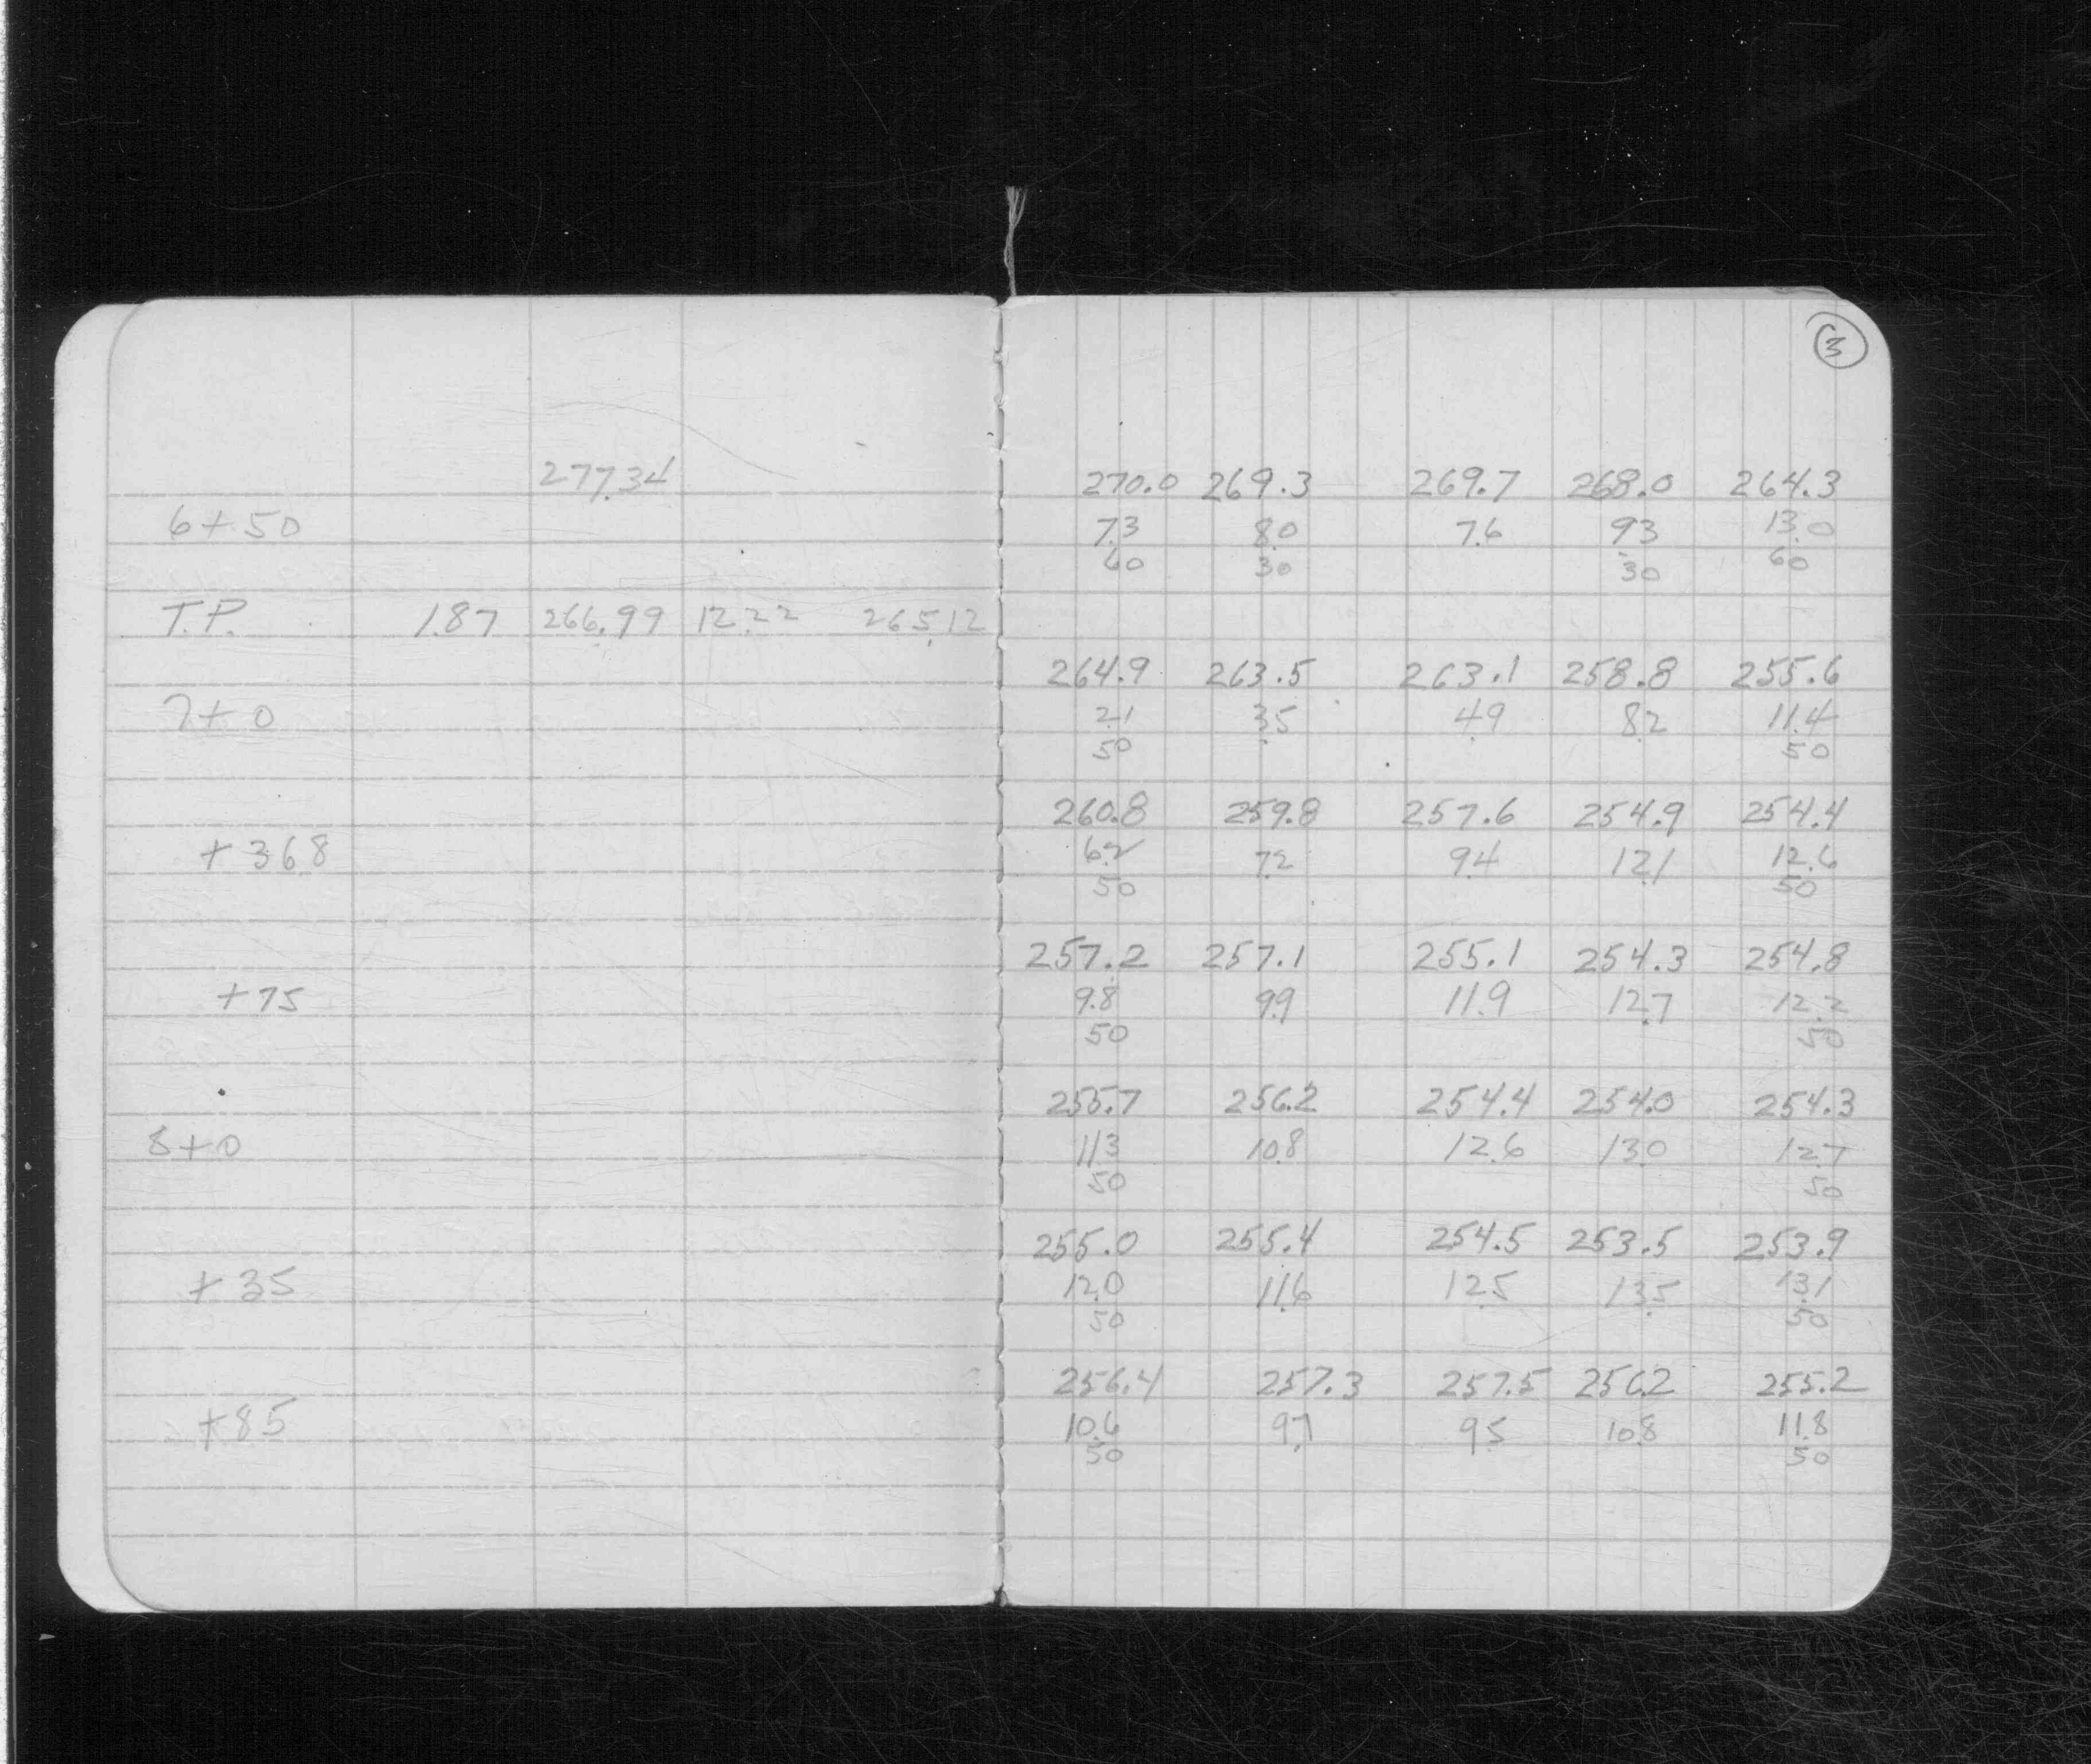 3
277.34 270.0 269.3 269.7 268.0 264.3
6+50 7.3 8.0 7.6 9.3 13.0
60 30 30 60
T.P. 1.87 266.99 12.22 265.12
264.9 263.5 263.1 258.8 255.6
7+0 2.1 3.5 4.9 8.2 11.4
50 50
260.8 259.8 257.6 254.9 254.4
+368 6.2 7.2 9.4 12.1 12.6
50 50
257.2 257.1 255.1 254.3 254.8
+75 9.8 9.9 11.9 12.7 12.2
50 50
255.7 256.2 254.4 254.0 254.3
8+0 11.3 10.8 12.6 13.0 12.7
50 50
255.0 255.4 254.5 253.5 253.9
+35 12.0 11.6 12.5 13.5 13.1
50 50
256.4 257.3 257.5 256.2 255.2
+85 10.6 9.7 9.5 10.8 11.8
50 50